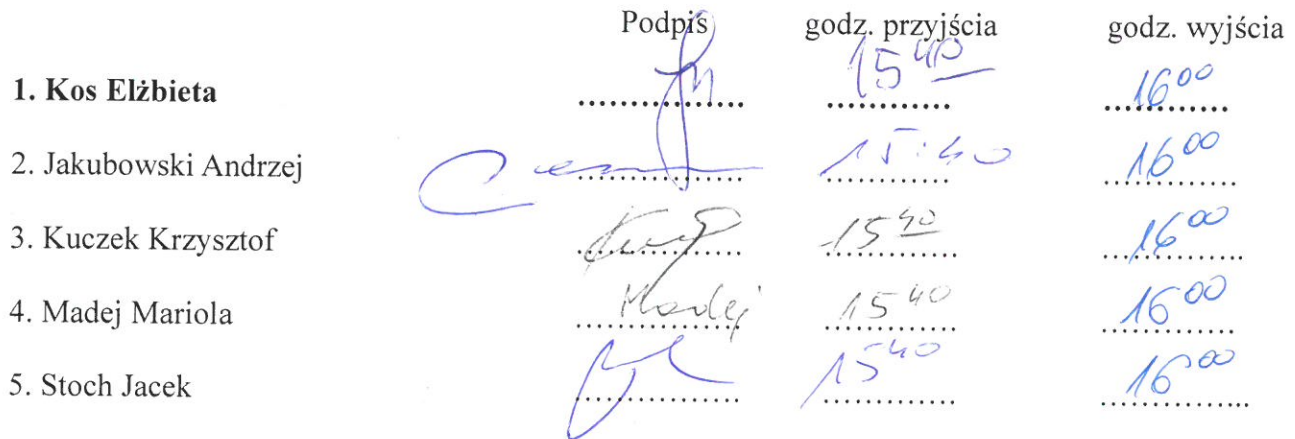 Podpis godz. przyjścia godz. wyjścia
1. Kos Elżbieta ............ 15 40 16 00
2. Jakubowski Andrzej ............ 15:40 16 00
3. Kuczek Krzysztof ............ 15 40 16 00
4. Madej Mariola Madej 15 40 16 00
5. Stoch Jacek ............ 15 40 16 00